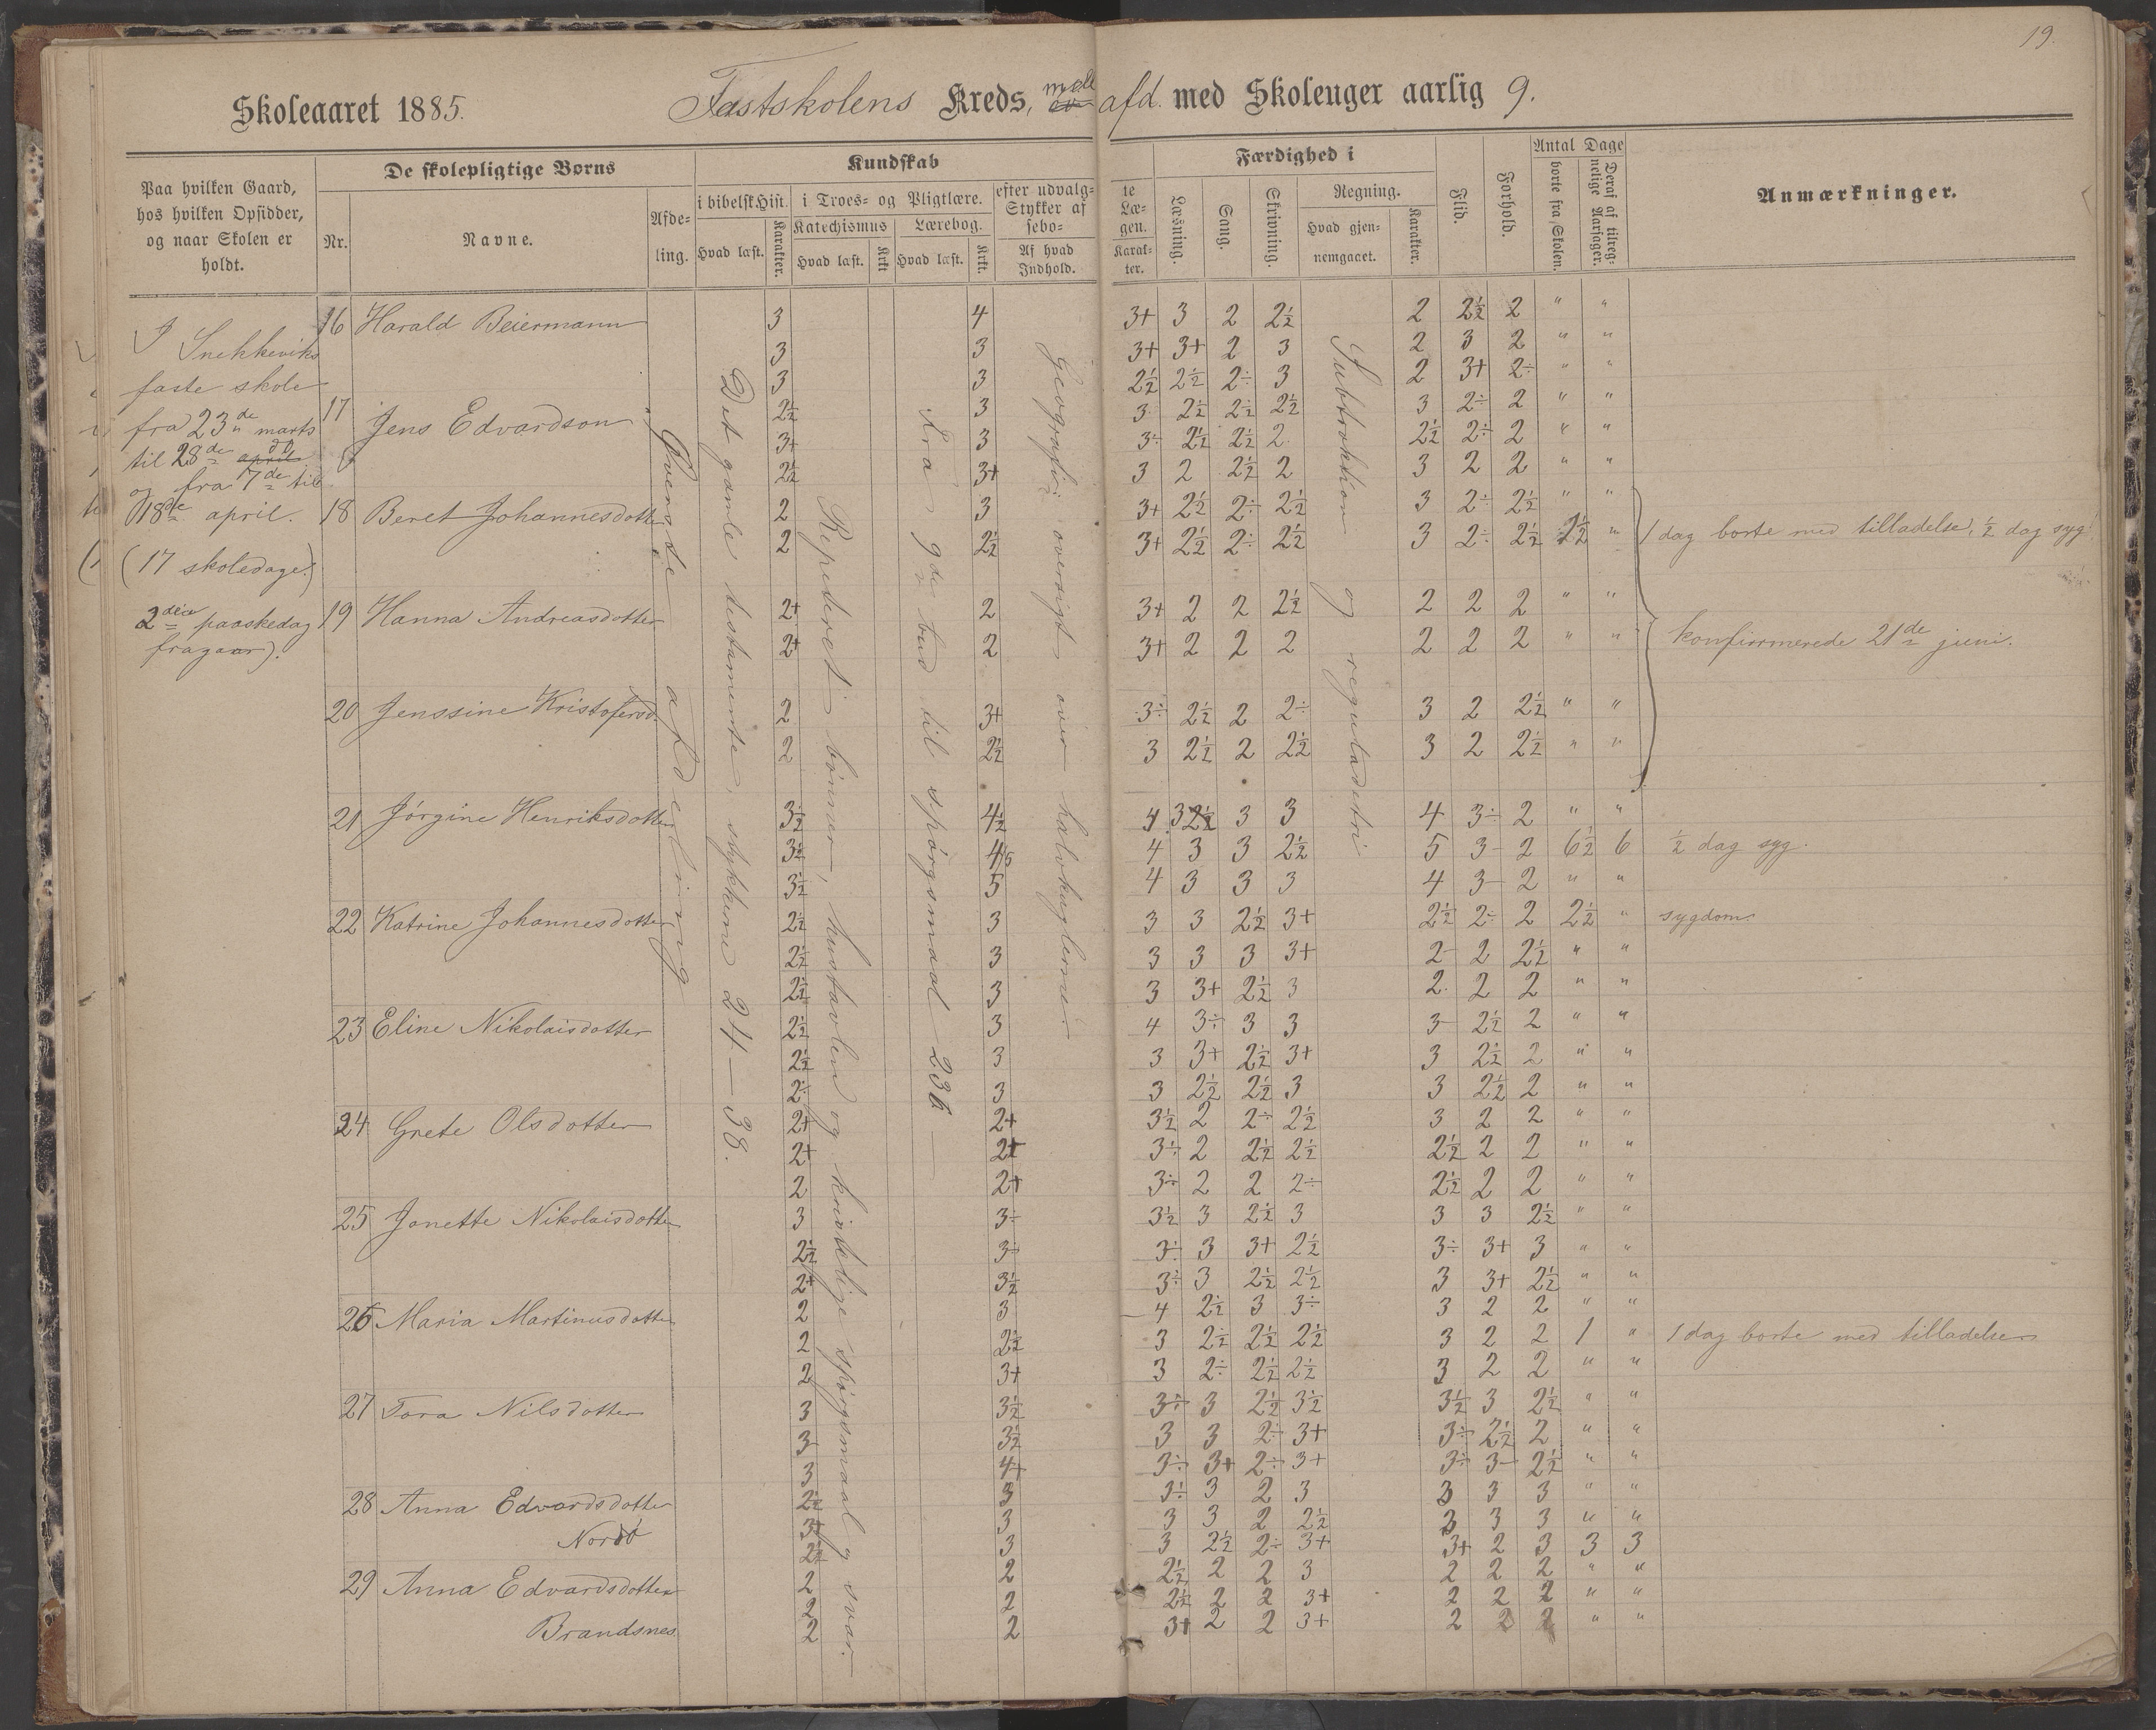 19.
Skoleaaret 1885. Fastskolens Kreds, mell afd. med Skoleuger aarlig 9.
Paa hvilken Gaard, hos hvilken Opsidder, og naar Skolen er holdt.
De skolepligtige Børns
Nr. Navne. Afdeling.
Kundskab
i bibelsk Hist. Hvad læst. Karakter.
i Troes- og Pligtlære.
Katechismus Hvad læst. Krkt.
Lærebog. Hvad læst. Krkt.
efter udvalg- Stykker af sebo-
Af hvad Indhold.
te Læ- gen. Karak- ter.
Færdighed i
Læsning. Sang. Skrivning.
Regning. Hvad gjen- nemgaaet. Karakter.
Flid. Forhold.
Antal Dage
borte fra Skolen. Deraf af tilreg- nelige Aarsager.
Anmærkninger.
I Snekkeviks
faste skole
fra 23de marts
til 28de april do
og fra 7de til
18de april.
(17 skoledage)
2den paaskedag
fragaar).
Øverste afdeling
Det gamle testamente, stykkene 24 – 38.
Repeteret bønner, hustavlen og kristelige spørgsmaal og svar.
Fra 9de bud til spørgsmaal 236 —
Geografi: oversigt over halvkuglerne.
Subtraktion og reguladetri
16 Harald Beiermann 3 4 3+ 3 2 2½ 2 2½ 2 " "
3 3 3+ 3+ 2 3 2 3 2 " "
3 3 2½ 2½ 2÷ 3 2 3+ 2÷ " "
17 Jens Edvardson 2½ 3 3 2½ 2½ 2½ 3 2÷ 2 " "
3+ 3 3÷ 2½ 2½ 2 2½ 2÷ 2 " "
2½ 3+ 3 2 2½ 2 3 2 2 " "
18 Beret Johannesdotter 2 3 3+ 2½ 2÷ 2½ 3 2÷ 2½ " "
2 2½ 3+ 2½ 2÷ 2½ 3 2÷ 2½ 1½ " 1 dag borte med tilladelse, ½ dag syg
19 Hanna Andreasdotter 2+ 2 3+ 2 2 2½ 2 2 2 " "
2+ 2 3+ 2 2 2 2 2 2 " " konfirmerede 21de juni.
20 Jenssine Kristofersd. 2 3+ 3÷ 2½ 2 2÷ 3 2 2½ " "
2 2½ 3 2½ 2 2½ 3 2 2½ " "
21 Jørgine Henriksdotter 3½ 4½ 4 3 3 3 4 3÷ 2 " "
3½ 4/5 4 3 3 2½ 5 3- 2 6½ 6 ½ dag syg.
3½ 5 4 3 3 3 4 3- 2 " "
22 Katrine Johannesdotter 2½ 3 3 3 2½ 3+ 2½ 2÷ 2 2½ " sygdom
2½ 3 3 3 3 3+ 2- 2 2½ " "
2½ 3 3 3+ 2½ 3 2 2 2 " "
23 Eline Nikolaisdotter 2½ 3 4 3÷ 3 3 3- 2½ 2 " "
2½ 3 3 3+ 2½ 3+ 3 2½ 2 " "
2÷ 3 3 2½ 2½ 3 3 2½ 2 " "
24 Grete Olsdotter 2+ 2+ 3½ 2 2÷ 2½ 3 2 2 " "
2+ 2+ 3÷ 2 2½ 2½ 2½ 2 2 " "
2 2+ 3÷ 2 2 2÷ 2½ 2 2 " "
25 Janette Nikolaisdotter 3 3÷ 3½ 3 2½ 3 3 3 2½ " "
2½ 3÷ 3÷ 3 3+ 2½ 3÷ 3+ 3 " "
2+ 3½ 3÷ 3 2½ 2½ 3 3+ 2½ " "
26 Maria Martinusdotter 2 3 4 2½ 3 3÷ 3 2 2 " "
2 2½ 3 2½ 2½ 2½ 3 2 2 1 " 1 dag borte med tilladelse
2 3+ 3 2÷ 2½ 2½ 3 2 2 " "
27 Tora Nilsdotter 3 3½ 3÷ 3 2½ 3½ 3½ 3 2½ " "
3- 3½ 3 3 2÷ 3+ 3÷ 2½ 2 " "
3 4+ 3÷ 3+ 2÷ 3+ 3÷ 3- 2½ " "
28 Anna Edvardsdotter 2½ 3 3½ 3 2 3 3 3 3 " "
Nordö 3+ 3 3 3 2 2½ 3 3 3 " "
2½ 3 3 2½ 2÷ 3+ 3+ 2 3 3 3
29 Anna Edvardsdotter 2 2 2½ 2 2 3 2 2 2 " "
2 2 2½ 2 2 3+ 2 2 2 " "
Brandsnes 2 2 3+ 2 2 3+ 2 2 2 " "